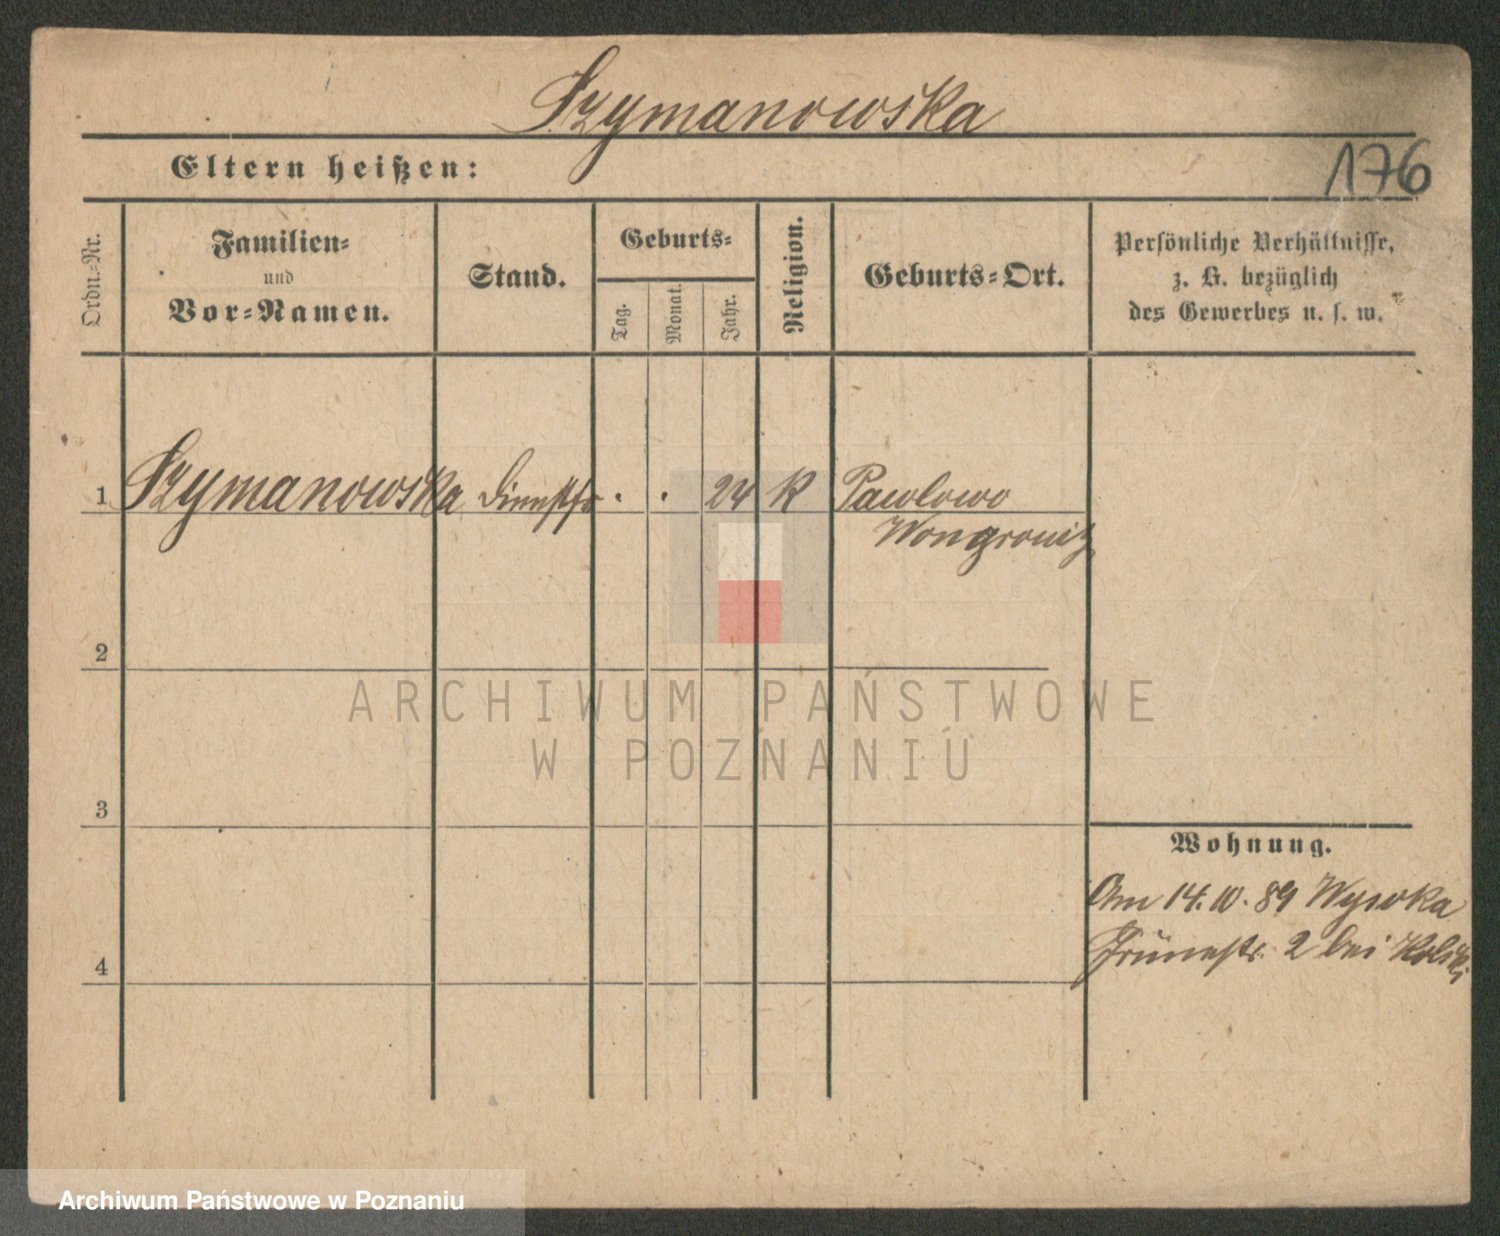 Szymanowska
Eltern heißen:
176
Ordn.-Nr.
Familien-
und
Vor-Namen.
Stand.
Geburts-
Tag.
Monat.
Jahr.
Religion.
Geburts-Ort.
Persönliche Verhältnisse,
z. B. bezüglich
des Gewerbes u. s. w.
1 Szymanowska Dienstfr . . 24 K Pawlowo
Wongrowitz
2
ARCHIWUM PAŃSTWOWE
W POZNANIU
3
Wohnung.
Am 14. 10. 89 Wysoka
2 bei
4
Archiwum Państwowe w Poznaniu